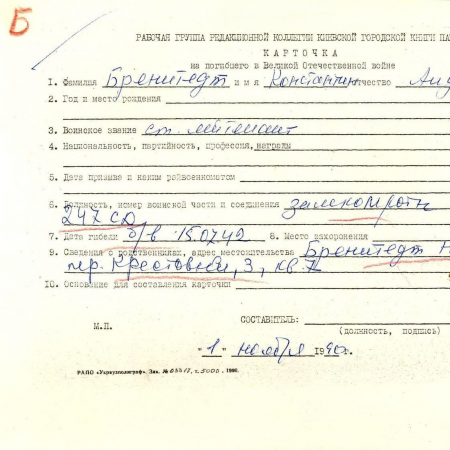 Б
РАБОЧАЯ ГРУППА РЕДАКЦИОННОЙ КОЛЛЕГИИ КИЕВСКОЙ ГОРОДСКОЙ КНИГИ ПА
КАРТОЧКА
на погибшего в Великой Отечественной войне
1. Фамилия Бренитедт имя Константин отчество Анд
2. Год и место рождения
3. Воинское звание ст. лейтенант
4. Национальность, партийность, профессия, награды
5. Дата призыва и каким райвоенкоматом
6. Должность, номер воинской части и соединения замкомроты
247 сд
7. Дата гибели б/в 15.07.42 8. Место захоронения
9. Сведения о родственниках, адрес местожительства Бренитедт Н
пер. Крестовый, 3, кв. 7
10. Основание для составления карточки
СОСТАВИТЕЛЬ:
(должность, подпись)
М.П.
"1" ноября 1990г.
РАПО «Укрвузполиграф». Зак. № т. 5000. 1990.